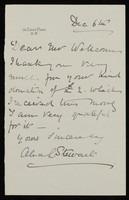 Dec 6th
Dear Mr Wellcome
Thank you very
much for your kind
donation of £2 which
I received this morn
I am very grateful
for it —
Yours Sincerely
Stewart